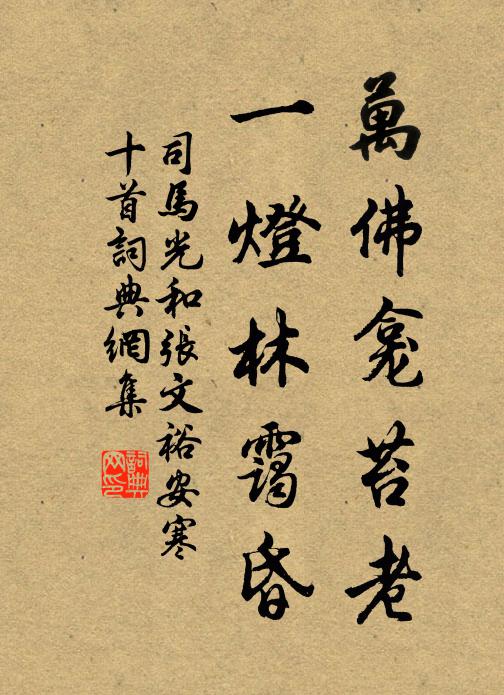 萬佛龕苔老
一燈林靄昏
司馬光和張文裕安寒
十首詞典網集
詞典
网印